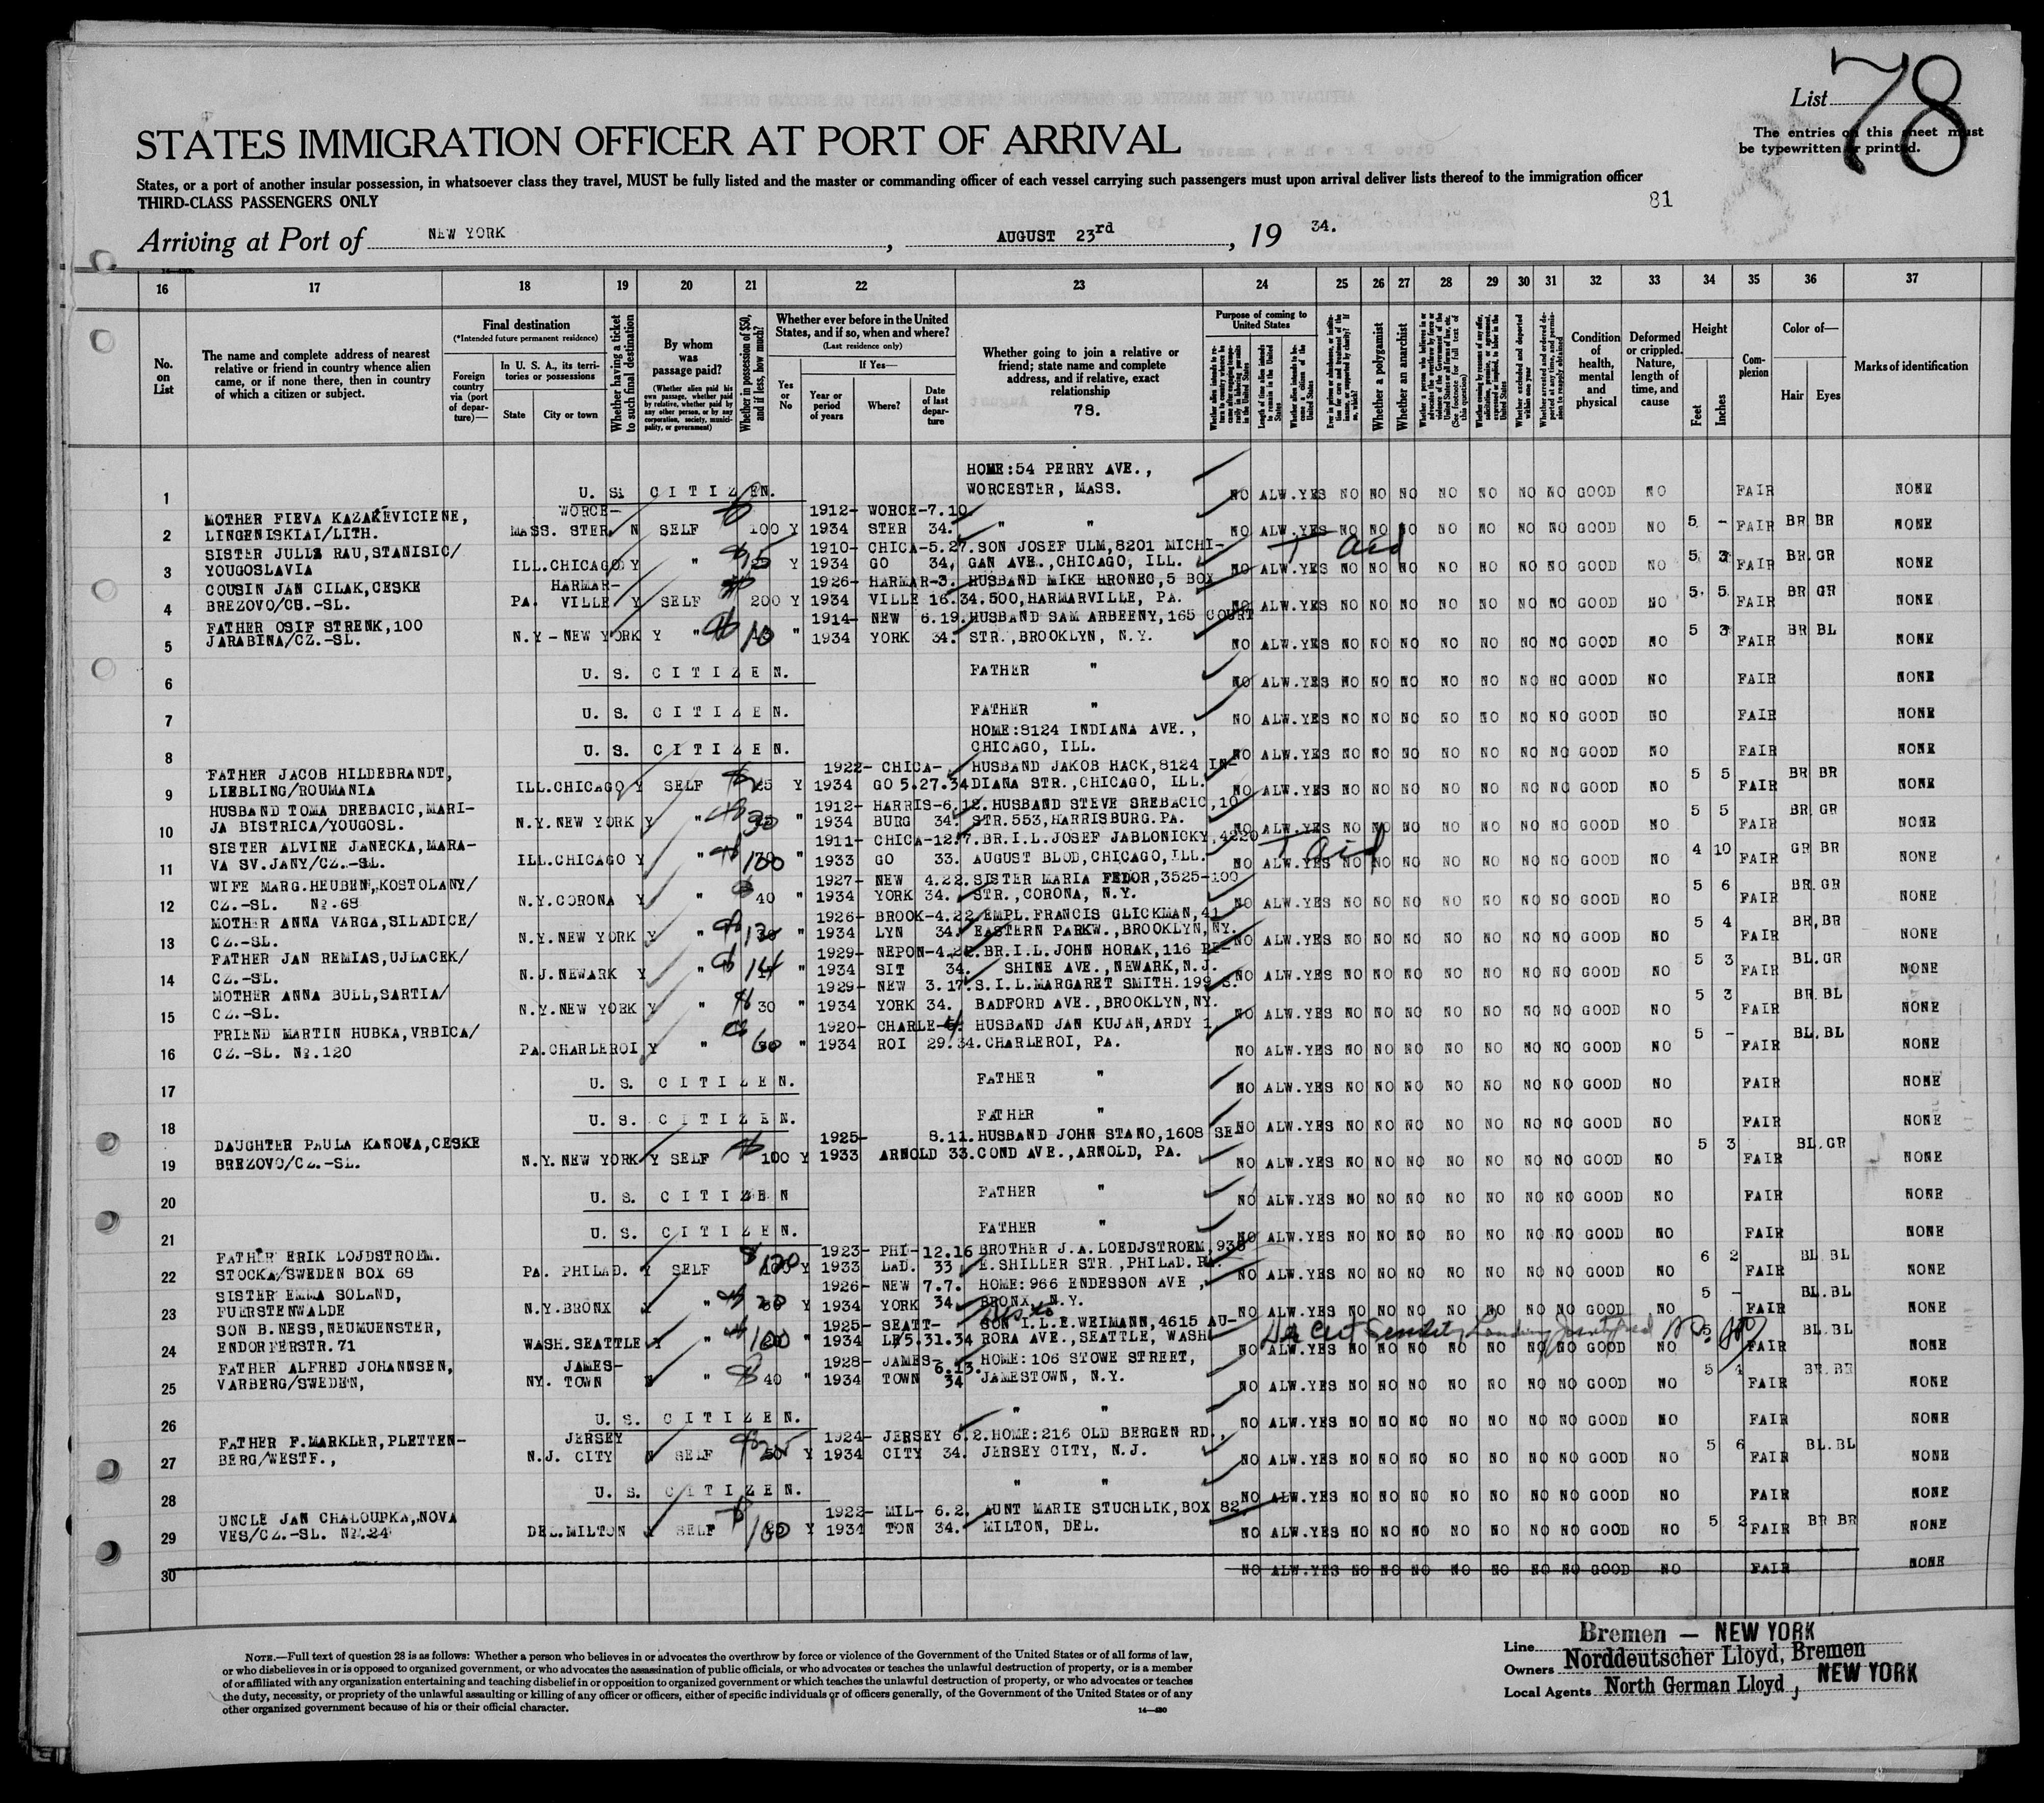 List 78
The entries on this sheet must
be typewritten or printed.
STATES IMMIGRATION OFFICER AT PORT OF ARRIVAL
States, or a port of another insular possession, in whatsoever class they travel, MUST be fully listed and the master or commanding officer of each vessel carrying such passengers must upon arrival deliver lists thereof to the immigration officer
THIRD-CLASS PASSENGERS ONLY
81
Arriving at Port of NEW YORK, AUGUST 23rd, 19 34.
16 17 18 19 20 21 22 23 24 25 26 27 28 29 30 31 32 33 34 35 36 37
No. on List
The name and complete address of nearest relative or friend in country whence alien came, or if none there, then in country of which a citizen or subject.
Final destination
(*Intended future permanent residence)
Foreign country via (port of departure)—
In U. S. A., its territories or possessions
State City or town
Whether having a ticket to such final destination
By whom was passage paid?
(Whether alien paid his own passage, whether paid by relative, whether paid by any other person, or by any corporation, society, municipality, or government)
Whether in possession of $50, and if less, how much?
Whether ever before in the United States, and if so, when and where?
(Last residence only)
Yes or No
If Yes—
Year or period of years
Where?
Date of last departure
Whether going to join a relative or friend; state name and complete address, and if relative, exact relationship
78.
Purpose of coming to United States
Whether a polygamist
Whether an anarchist
Condition of health, mental and physical
Deformed or crippled. Nature, length of time, and cause
Height
Feet Inches
Complexion
Color of—
Hair Eyes
Marks of identification
HOME:54 PERRY AVE.,
1 U. S. CITIZEN. WORCESTER, MASS. NO ALW. YES NO NO NO NO NO NO NO GOOD NO FAIR NONE
MOTHER FIEVA KAZAKEVICIENE, WORCE- 1912- WORCE-7.10
2 LINGENISKIAI/LITH. MASS. STER N SELF 100 Y 1934 STER 34. " " NO ALW. YES NO NO NO NO NO NO NO GOOD NO 5 - FAIR BR BR NONE
SISTER JULIE RAU, STANISIC/ 1910- CHICA-5.27. SON JOSEF ULM, 8201 MICHI- T aid
3 YOUGOSLAVIA ILL. CHICAGO Y " 25 Y 1934 GO 34. GAN AVE., CHICAGO, ILL. NO ALW. YES NO NO NO NO NO NO NO GOOD NO 5 3 FAIR BR. GR NONE
COUSIN JAN CILAK, CESKE HARMAR- 1926- HARMAR-3. HUSBAND MIKE HRONEC, 5 BOX
4 BREZOVO/CS.-SL. PA. VILLE Y SELF 200 Y 1934 VILLE 16.34. 500, HARMARVILLE, PA. NO ALW. YES NO NO NO NO NO NO NO GOOD NO 5 5 FAIR BR GR NONE
FATHER OSIF STRENK, 100 1914- NEW 6.19. HUSBAND SAM ARBEENY, 165 COURT
5 JARABINA/CZ.-SL. N.Y.- NEW YORK Y " 10 " 1934 YORK 34. STR., BROOKLYN, N.Y. NO ALW. YES NO NO NO NO NO NO NO GOOD NO 5 3 FAIR BR BL NONE
6 U. S. CITIZEN. FATHER " NO ALW. YES NO NO NO NO NO NO NO GOOD NO FAIR NONE
7 U. S. CITIZEN. FATHER " NO ALW. YES NO NO NO NO NO NO NO GOOD NO FAIR NONE
HOME:8124 INDIANA AVE.,
8 U. S. CITIZEN. CHICAGO, ILL. NO ALW. YES NO NO NO NO NO NO NO GOOD NO FAIR NONE
FATHER JACOB HILDEBRANDT, 1922- CHICA- HUSBAND JAKOB HACK, 8124 IN-
9 LIEBLING/ROUMANIA ILL. CHICAGO Y SELF 25 Y 1934 GO 5.27.34 DIANA STR., CHICAGO, ILL. NO ALW. YES NO NO NO NO NO NO NO GOOD NO 5 5 FAIR BR BR NONE
HUSBAND TOMA DREBACIC, MARI- 1912- HARRIS-6.12. HUSBAND STEVE SREBACIC, 10
10 JA BISTRICA/YOUGOSL. N.Y. NEW YORK Y " 30 " 1934 BURG 34. STR. 553, HARRISBURG. PA. NO ALW. YES NO NO NO NO NO NO NO GOOD NO 5 5 FAIR BR. GR NONE
SISTER ALVINE JANECKA, MARA- 1911- CHICA-12.7. BR.I.L. JOSEF JABLONICKY, 4220 T aid
11 VA SV. JANY/CZ.-SL. ILL. CHICAGO Y " 100 " 1933 GO 33. AUGUST BLOD, CHICAGO, ILL. NO ALW. YES NO NO NO NO NO NO NO GOOD NO 4 10 FAIR GR BR NONE
WIFE MARG. HEUBEN, KOSTOLANY/ 1927- NEW 4.22. SISTER MARIA FEDOR, 3525-100
12 CZ.-SL. No.68 N.Y. CORONA Y " 40 " 1934 YORK 34. STR., CORONA, N.Y. NO ALW. YES NO NO NO NO NO NO NO GOOD NO 5 6 FAIR BR. GR NONE
MOTHER ANNA VARGA, SILADICE/ 1926- BROOK-4.22. EMPL. FRANCIS GLICKMAN, 41
13 CZ.-SL. N.Y. NEW YORK Y " " 1934 LYN 34. EASTERN PARKW., BROOKLYN, NY. NO ALW. YES NO NO NO NO NO NO NO GOOD NO 5 4 FAIR BR, BR NONE
FATHER JAN REMIAS, UJLACEK/ 1929- NEPON-4.22. BR.I.L. JOHN HORAK, 116
14 CZ.-SL. N.J. NEWARK Y " 14 " 1934 SIT 34. SHINE AVE., NEWARK, N.J. NO ALW. YES NO NO NO NO NO NO NO GOOD NO 5 3 FAIR BL. GR NONE
MOTHER ANNA BULL, SARTIA/ 1929- NEW 3.17. S.I.L. MARGARET SMITH. 199 S.
15 CZ.-SL. N.Y. NEW YORK Y " 30 " 1934 YORK 34. BADFORD AVE., BROOKLYN, NY. NO ALW. YES NO NO NO NO NO NO NO GOOD NO 5 3 FAIR BR. BL NONE
FRIEND MARTIN HUBKA, VRBICA/ 1920- CHARLE- HUSBAND JAN KUJAN, ARDY 1,
16 CZ.-SL. No.120 PA. CHARLEROI Y " 60 " 1934 ROI 29.34. CHARLEROI, PA. NO ALW. YES NO NO NO NO NO NO NO GOOD NO 5 - FAIR BL. BL NONE
17 U. S. CITIZEN. FATHER " NO ALW. YES NO NO NO NO NO NO NO GOOD NO FAIR NONE
18 U. S. CITIZEN. FATHER " NO ALW. YES NO NO NO NO NO NO NO GOOD NO FAIR NONE
DAUGHTER PAULA KANOVA, CESKE 1925- 8.11. HUSBAND JOHN STANO, 1608 SE-
19 BREZOVO/CZ.-SL. N.Y. NEW YORK Y SELF 100 Y 1933 ARNOLD 33. COND AVE., ARNOLD, PA. NO ALW. YES NO NO NO NO NO NO NO GOOD NO 5 3 FAIR BL. GR NONE
20 U. S. CITIZEN FATHER " NO ALW. YES NO NO NO NO NO NO NO GOOD NO FAIR NONE
21 U. S. CITIZEN. FATHER " NO ALW. YES NO NO NO NO NO NO NO GOOD NO FAIR NONE
FATHER ERIK LOJDSTROEM. 1923- PHI- 12.16 BROTHER J.A. LOEDJSTROEM, 938
22 STOCKA/SWEDEN BOX 68 PA. PHILAD. Y SELF Y 1933 LAD. 33 E. SHILLER STR., PHILAD. PA. NO ALW. YES NO NO NO NO NO NO NO GOOD NO 6 2 FAIR BL. BL NONE
SISTER EMMA SOLAND, 1926- NEW 7.7. HOME: 966 ENDESSON AVE,
23 FUERSTENWALDE N.Y. BRONX " Y 1934 YORK 34. BRONX, N.Y. NO ALW. YES NO NO NO NO NO NO NO GOOD NO 5 - FAIR BL. BL NONE
SON B. NESS, NEUMUENSTER, 1925- SEATT- SON I.L.E. WEIMANN, 4615 AU-
24 ENDORFERSTR. 71 WASH. SEATTLE Y " 100 " 1934 LE/5.31.34 RORA AVE., SEATTLE, WASH. NO ALW. YES NO NO NO NO NO NO NO GOOD NO FAIR BL. BL NONE
FATHER ALFRED JOHANNSEN, JAMES- 1928- JAMES- 6.13. HOME: 106 STOWE STREET,
25 VARBERG/SWEDEN, NY. TOWN N " 40 " 1934 TOWN 34 JAMESTOWN, N.Y. NO ALW. YES NO NO NO NO NO NO NO GOOD NO 5 4 FAIR BR. BR NONE
26 U. S. CITIZEN. " " NO ALW. YES NO NO NO NO NO NO NO GOOD NO FAIR NONE
FATHER F. MARKLER, PLETTEN- JERSEY 1924- JERSEY 6.2. HOME: 216 OLD BERGEN RD.,
27 BERG/WESTF., N.J. CITY N SELF Y 1934 CITY 34. JERSEY CITY, N.J. NO ALW. YES NO NO NO NO NO NO NO GOOD NO 5 6 FAIR BL. BL NONE
28 U. S. CITIZEN. " " NO ALW. YES NO NO NO NO NO NO NO GOOD NO FAIR NONE
UNCLE JAN CHALOUPKA, NOVA 1922- MIL- 6.2. AUNT MARIE STUCHLIK, BOX 82,
29 VES/CZ.-SL. No.24 DEL. MILTON Y SELF 100 Y 1934 TON 34. MILTON, DEL. NO ALW. YES NO NO NO NO NO NO NO GOOD NO 5 2 FAIR BR BR NONE
30 NO ALW. YES NO NO NO NO NO NO NO GOOD NO FAIR NONE
NOTE.—Full text of question 28 is as follows: Whether a person who believes in or advocates the overthrow by force or violence of the Government of the United States or of all forms of law,
or who disbelieves in or is opposed to organized government, or who advocates the assassination of public officials, or who advocates or teaches the unlawful destruction of property, or is a member
of or affiliated with any organization entertaining and teaching disbelief in or opposition to organized government or which teaches the unlawful destruction of property, or who advocates or teaches
the duty, necessity, or propriety of the unlawful assaulting or killing of any officer or officers, either of specific individuals or of officers generally, of the Government of the United States or of any
other organized government because of his or their official character.
Line Bremen — NEW YORK
Owners Norddeutscher Lloyd, Bremen
Local Agents North German Lloyd, NEW YORK